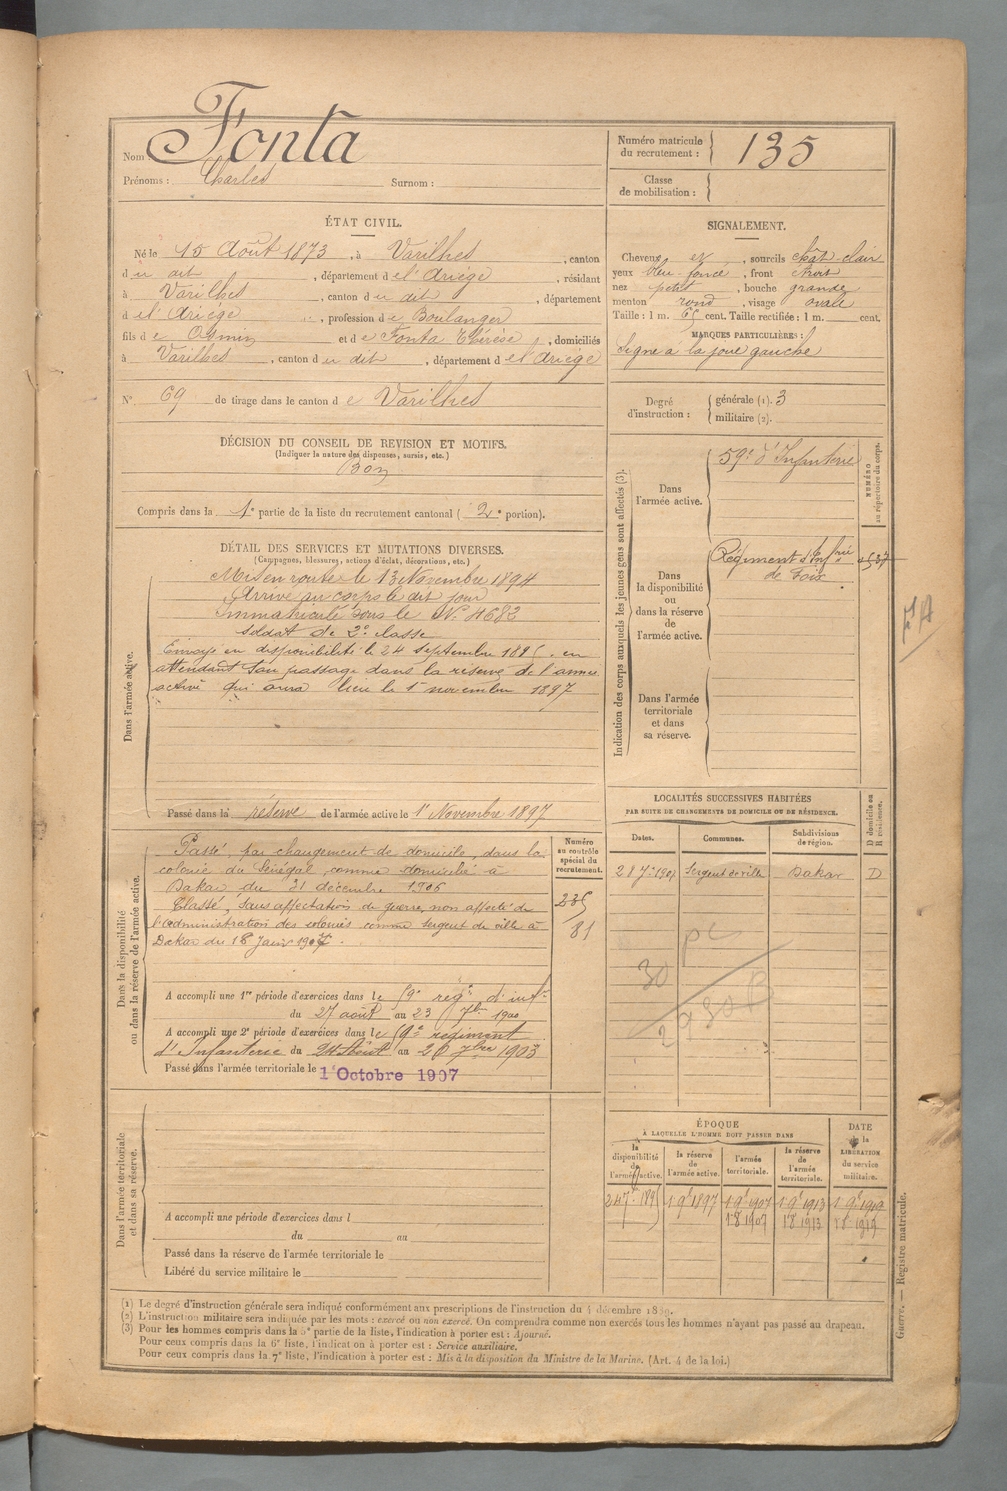 Nom : Fonta
Prénoms : Charles Surnom :
Numéro matricule du recrutement : 135
Classe de mobilisation :
ÉTAT CIVIL.
Né le 15 Août 1873, à Varilhes, canton
du dit, département de l'Ariège, résidant
à Varilhes, canton du dit, département
de l'Ariège, profession de Boulanger
fils de et de Fonta Thérèse, domiciliés
à Varilhes, canton du dit, département de l'Ariège
N° 69 de tirage dans le canton de Varilhes
SIGNALEMENT.
Cheveux et, sourcils chât-clair
yeux bleu-foncé, front étroit
nez petit, bouche grande
menton rond, visage ovale
Taille : 1 m. 65 cent. Taille rectifiée : 1 m. cent.
MARQUES PARTICULIÈRES :
Signe à la joue gauche
Degré d'instruction : générale (1). 3
militaire (2).
DÉCISION DU CONSEIL DE REVISION ET MOTIFS.
(Indiquer la nature des dispenses, sursis, etc.)
Bon
Compris dans la 1e partie de la liste du recrutement cantonal (2e portion).
DÉTAIL DES SERVICES ET MUTATIONS DIVERSES.
(Campagnes, blessures, actions d'éclat, décorations, etc.)
Dans l'armée active.
Mis en route le 13 Novembre 1894
Arrivé au corps le dit jour
Immatriculé sous le N° 4682
Soldat de 2e classe
Envoyé en disponibilité le 24 septembre 1895, en
attendant son passage dans la réserve de l'armée
active qui aura lieu le 1er novembre 1897
Passé dans la réserve de l'armée active le 1er Novembre 1897
Indication des corps auxquels les jeunes gens sont affectés (3).
NUMÉRO au répertoire du corps.
Dans l'armée active.
59e d'Infanterie
Dans la disponibilité ou dans la réserve de l'armée active.
Régiment d'Infrie
de Foix
Dans l'armée territoriale et dans sa réserve.
Dans la disponibilité ou dans la réserve de l'armée active.
Passé, par changement de domicile, dans la
colonie du Sénégal, comme domicilié à
Dakar du 31 décembre 1906
Classé, sans affectation de guerre, non affecté de
l'administration des colonies comme sergent de ville à
Dakar du 18 Janv 1907.
Numéro au contrôle spécial du recrutement.
235
81
A accompli une 1re période d'exercices dans le 59e régt d'inf
du 27 août au 23 7bre 1900
A accompli une 2e période d'exercices dans le 59e régiment
d'Infanterie du 24 Août au 20 7bre 1903
Passé dans l'armée territoriale le 1er Octobre 1907
LOCALITÉS SUCCESSIVES HABITÉES
PAR SUITE DE CHANGEMENTS DE DOMICILE OU DE RÉSIDENCE.
Dates. Communes. Subdivisions de région. D domicile ou R résidence.
Sergent de ville Dakar D
Dans l'armée territoriale et dans sa réserve.
A accompli une période d'exercices dans l
du au
Passé dans la réserve de l'armée territoriale le
Libéré du service militaire le
ÉPOQUE
À LAQUELLE L'HOMME DOIT PASSER DANS
la disponibilité de l'armée active. la réserve de l'armée active. l'armée territoriale. la réserve de l'armée territoriale. DATE de la LIBÉRATION du service militaire.
1 9e 1897 1 9e 1907 1 9e 1913 1 9e 1919
1 8 1907 1 8 1913 1 8 1919
(1) Le degré d'instruction générale sera indiqué conformément aux prescriptions de l'instruction du 4 décembre 1889.
(2) L'instruction militaire sera indiquée par les mots : exercé ou non exercé. On comprendra comme non exercés tous les hommes n'ayant pas passé au drapeau.
(3) Pour les hommes compris dans la 5e partie de la liste, l'indication à porter est : Ajourné.
Pour ceux compris dans la 6e liste, l'indication à porter est : Service auxiliaire.
Pour ceux compris dans la 7e liste, l'indication à porter est : Mis à la disposition du Ministre de la Marine. (Art. 4 de la loi.)
Guerre. — Registre matricule.